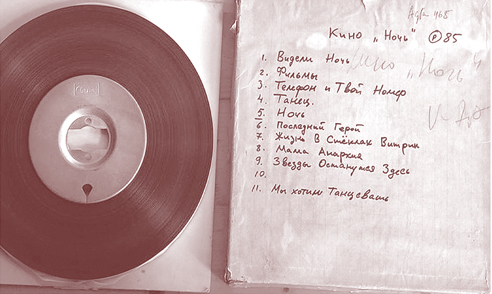 Agfa 468
Кино „Ночь" ℗85
1. Видели Ночь
2. Фильмы
3. Телефон и Твой Номер
4. Танец.
5. Ночь
6. Последний Герой
7. Жизнь В Стёклах Витрин
8. Мама Анархия
9. Звезды Останутся Здесь
10.
11. Мы хотим Танцевать
Кино „Ночь"